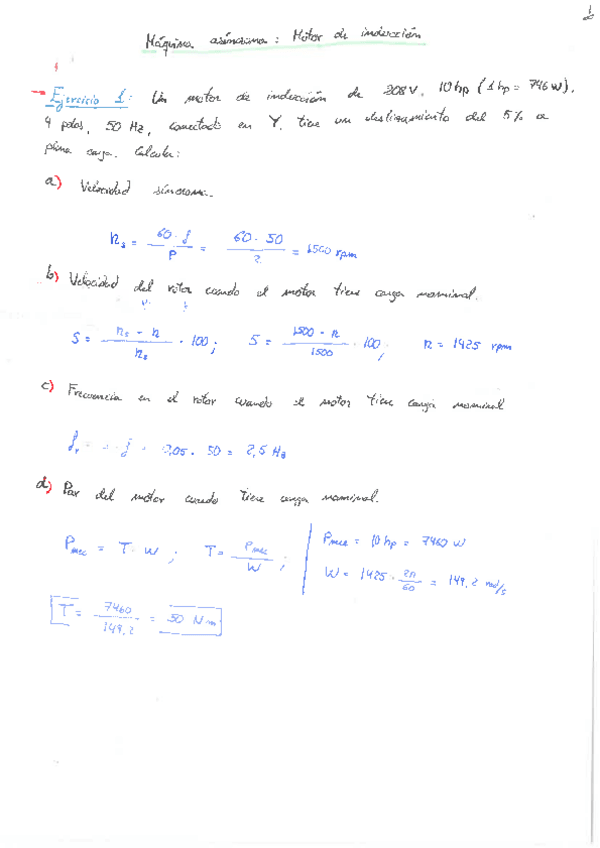 1
Máquina asíncrona: Motor de inducción
→ Ejercicio 1: Un motor de inducción de 208V, 10 hp (1 hp = 746 W),
4 polos, 50 Hz, conectado en Y, tiene un deslizamiento del 5% a
plena carga. Calcular:
a) Velocidad síncrona.
ns = 60 · f / P = 60 · 50 / 2 = 1500 rpm
b) Velocidad del rotor cuando el motor tiene carga nominal.
S = ns - n / ns · 100; S = 1500 - n / 1500 · 100; n = 1425 rpm
c) Frecuencia en el rotor cuando el motor tiene carga nominal
fr = s · f = 0,05 · 50 = 2,5 Hz
d) Par del motor cuando tiene carga nominal.
Pmec = T · W; T = Pmec / W;
Pmec = 10 hp = 7460 W
W = 1425 · 2π / 60 = 149,2 rad/s
T = 7460 / 149,2 = 50 Nm